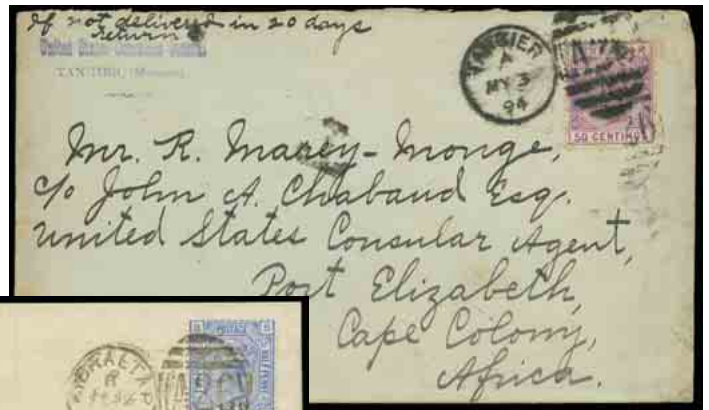 If not delivered in 20 days
return
United States Consulate General
TANGIER, (Morocco)
TANGIER
A
MY 3
94
50 CENTIMOS
Mr. R. Marey-Monge,
c/o John A. Chabaud Esq.
United States Consular Agent,
Port Elizabeth,
Cape Colony,
Africa.
GIBRALTAR
POSTAGE